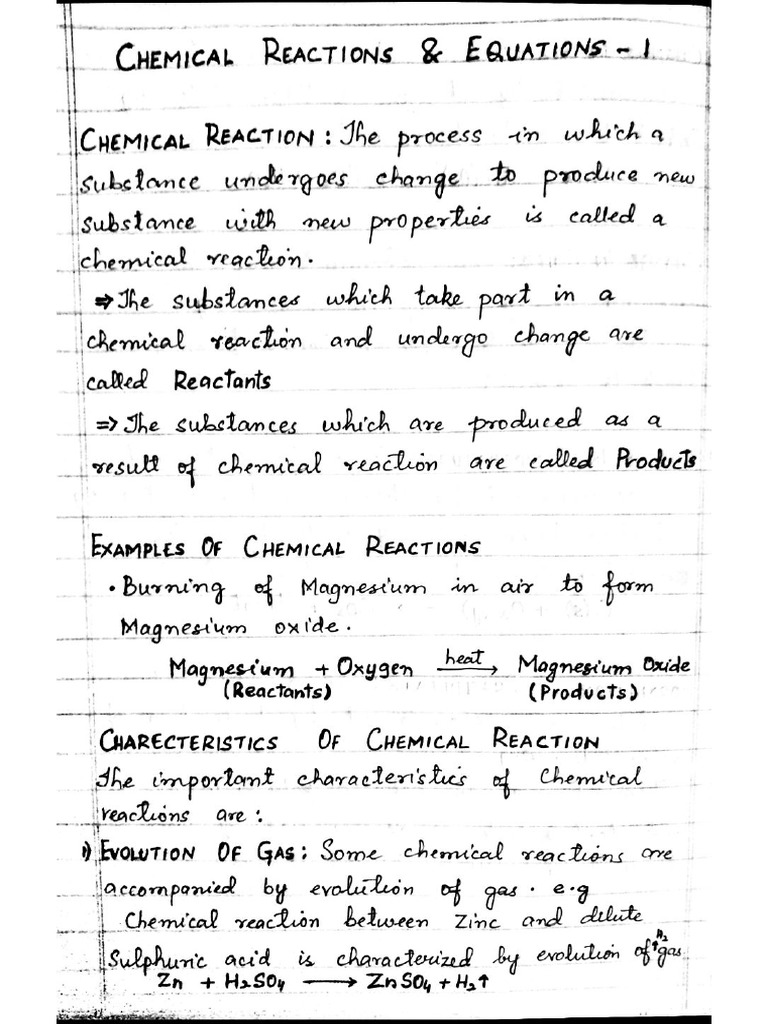 CHEMICAL REACTIONS & EQUATIONS - 1
CHEMICAL REACTION: The process in which a
substance undergoes change to produce new
substance with new properties is called a
chemical reaction.
⇒ The substances which take part in a
chemical reaction and undergo change are
called Reactants
⇒ The substances which are produced as a
result of chemical reaction are called Products
EXAMPLES OF CHEMICAL REACTIONS
• Burning of Magnesium in air to form
Magnesium oxide.
Magnesium + Oxygen heat→ Magnesium Oxide
(Reactants) (Products)
CHARECTERISTICS OF CHEMICAL REACTION
The important characteristics of Chemical
reactions are:
1) EVOLUTION OF GAS: Some chemical reactions are
accompanied by evolution of gas. e.g
Chemical reaction between Zinc and dilute
Sulphuric acid is characterized by evolution of H2↑ gas
Zn + H2SO4 → ZnSO4 + H2↑